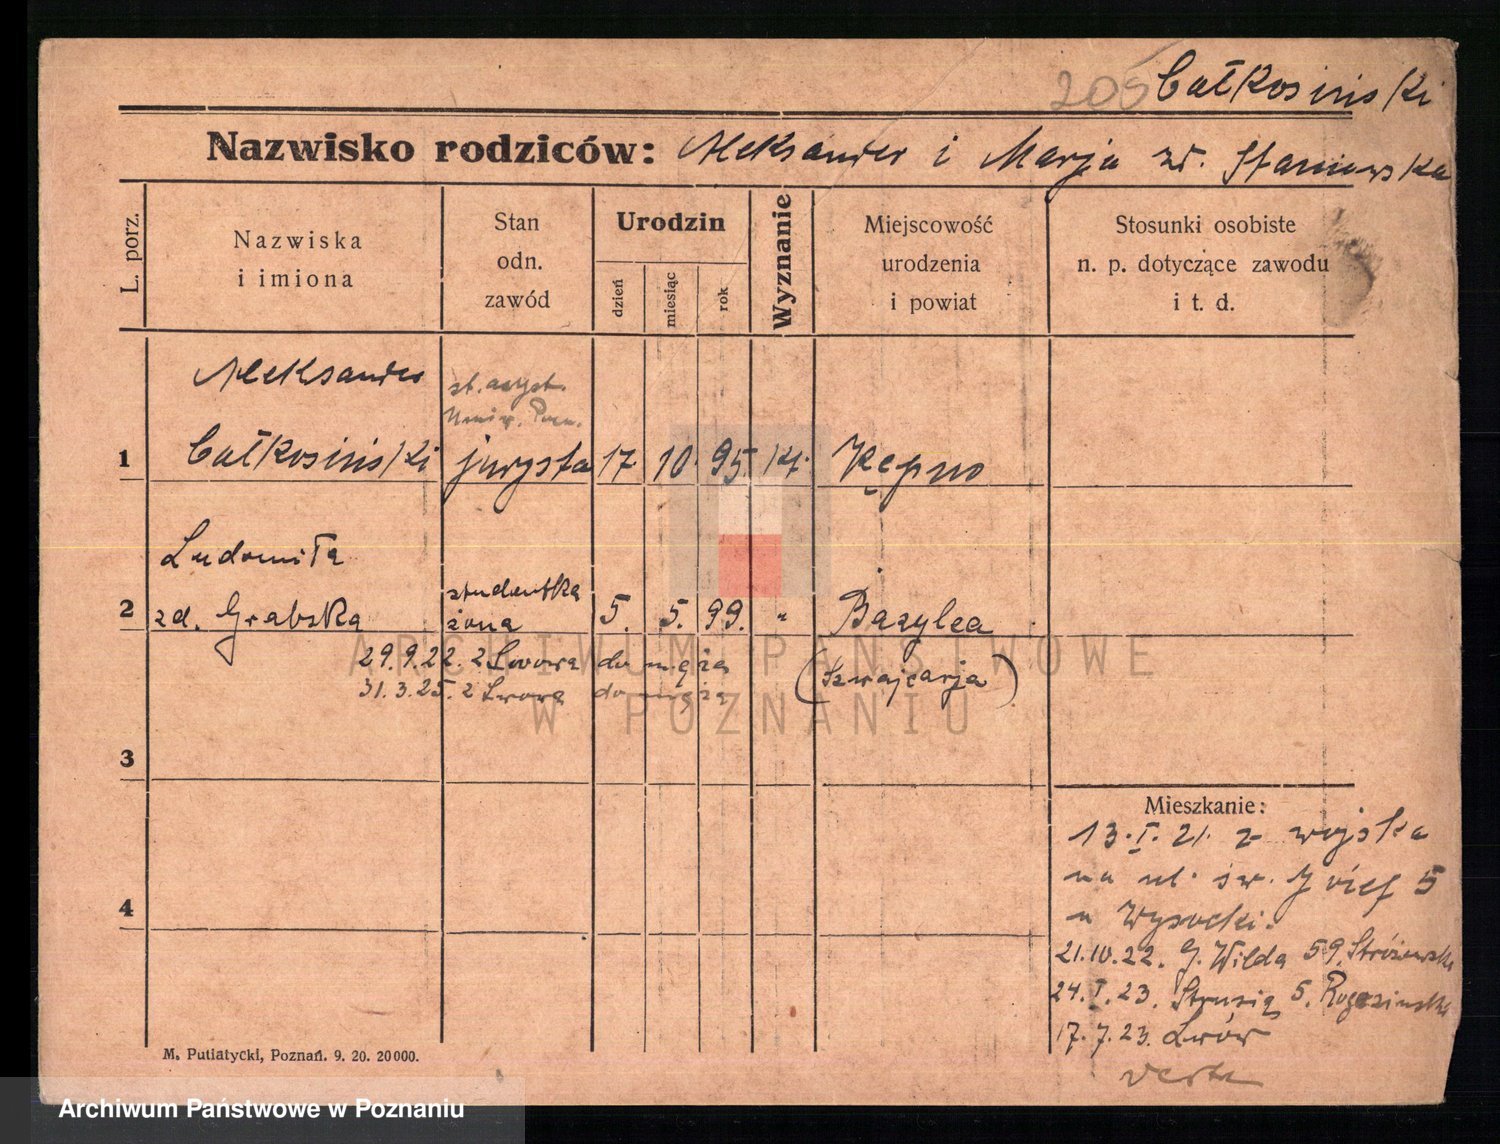 205 Całkosiński
Nazwisko rodziców: Aleksander i Marja zd. Staniewska
L. porz.
Nazwiska
i imiona
Stan
odn.
zawód
Urodzin
dzień
miesiąc
rok
Wyznanie
Miejscowość
urodzenia
i powiat
Stosunki osobiste
n. p. dotyczące zawodu
i t. d.
Aleksander
st. asyst.
Uniw. Pozn.
1 Całkosiński jurysta 17. 10. 95. kt. Kępno
Ludomiła
studentka
2 zd. Grabska żona 5. 5. 99. " Bazylea
29.9.22. z Lwowa do męża
(Szwajcarja)
31.3.25. z Lwowa do męża
3
4
Mieszkanie:
13.I.21. z wojska
na ul. św. Józef 5
u Wysocki.
21.10.22. G. Wilda 59. Stróżewski
24.I.23. Strusia 5. Rogozinski
17.7.23. Lwów
verte
M. Putiatycki, Poznań. 9. 20. 20000.
ARCHIWUM PAŃSTWOWE
W POZNANIU
Archiwum Państwowe w Poznaniu